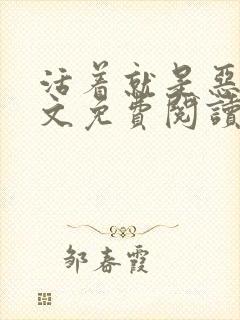 活着就是恶
文免费阅读
邹春霞